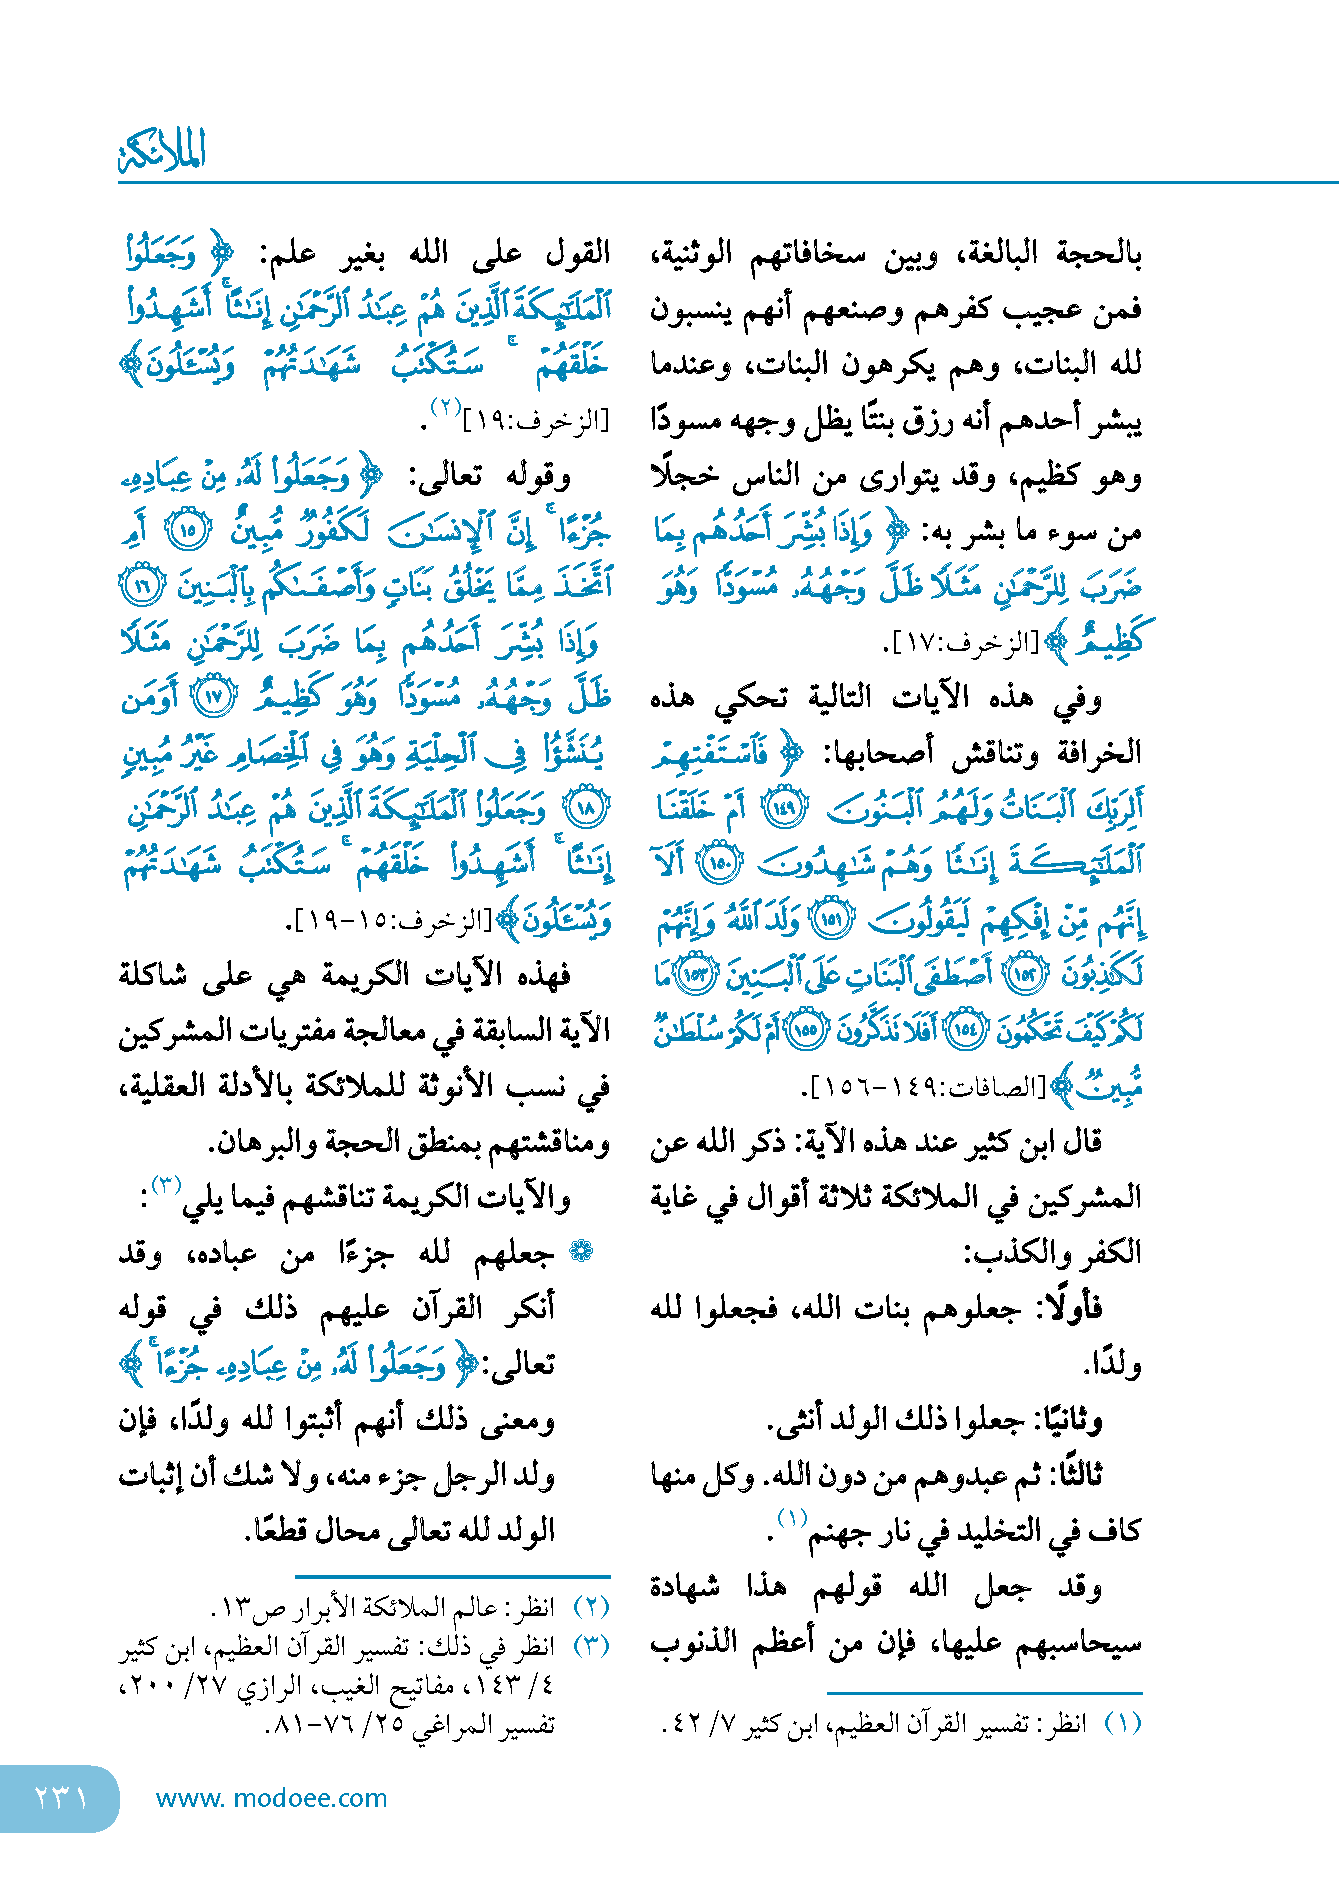 الملائكة
بالحجة البالغة، وبين سخافاتهم الوثنية،
فمن عجيب كفرهم وصنعهم أنهم ينسبون
لله البنات، وهم يكرهون البنات، وعندما
يبشر أحدهم أنه رزق بنتًا يظل وجهه مسودًا
وهو كظيم، وقد يتوارى من الناس خجلًا
من سوء ما بشر به: ﴿وَإِذَا بُشِّرَ أَحَدُهُم بِمَا
ضَرَبَ لِلرَّحْمَٰنِ مَثَلًا ظَلَّ وَجْهُهُۥ مُسْوَدًّا وَهُوَ
كَظِيمٌ﴾[الزخرف:١٧].
وفي هذه الآيات التالية تحكي هذه
الخرافة وتناقش أصحابها: ﴿فَٱسْتَفْتِهِمْ
أَلِرَبِّكَ ٱلْبَنَاتُ وَلَهُمُ ٱلْبَنُونَ ١٤٩ أَمْ خَلَقْنَا
ٱلْمَلَٰٓئِكَةَ إِنَٰثًا وَهُمْ شَٰهِدُونَ ١٥٠ أَلَآ
إِنَّهُم مِّنْ إِفْكِهِمْ لَيَقُولُونَ ١٥١ وَلَدَ ٱللَّهُ وَإِنَّهُمْ
لَكَٰذِبُونَ ١٥٢ أَصْطَفَى ٱلْبَنَاتِ عَلَى ٱلْبَنِينَ ١٥٣ مَا
لَكُمْ كَيْفَ تَحْكُمُونَ ١٥٤ أَفَلَا تَذَكَّرُونَ ١٥٥ أَمْ لَكُمْ سُلْطَٰنٌ
مُّبِينٌ﴾[الصافات:١٤٩-١٥٦].
قال ابن كثير عند هذه الآية: ذكر الله عن
المشركين في الملائكة ثلاثة أقوال في غاية
الكفر والكذب:
فأولًا: جعلوهم بنات الله، فجعلوا لله
ولدًا.
وثانيًا: جعلوا ذلك الولد أنثى.
ثالثًا: ثم عبدوهم من دون الله. وكل منها
كاف في التخليد في نار جهنم(١).
وقد جعل الله قولهم هذا شهادة
سيحاسبهم عليها، فإن من أعظم الذنوب
(١) انظر: تفسير القرآن العظيم، ابن كثير ٧/ ٤٢.
القول على الله بغير علم: ﴿وَجَعَلُوا۟
ٱلْمَلَٰٓئِكَةَ ٱلَّذِينَ هُمْ عِبَٰدُ ٱلرَّحْمَٰنِ إِنَٰثًا ۚ أَشَهِدُوا۟
خَلْقَهُمْ ۚ سَتُكْتَبُ شَهَٰدَتُهُمْ وَيُسْـَٔلُونَ﴾
[الزخرف:١٩](٢).
وقوله تعالى: ﴿وَجَعَلُوا۟ لَهُۥ مِنْ عِبَادِهِۦ
جُزْءًا ۚ إِنَّ ٱلْإِنسَٰنَ لَكَفُورٌ مُّبِينٌ ١٥ أَمِ
ٱتَّخَذَ مِمَّا يَخْلُقُ بَنَاتٍ وَأَصْفَىٰكُم بِٱلْبَنِينَ ١٦
وَإِذَا بُشِّرَ أَحَدُهُم بِمَا ضَرَبَ لِلرَّحْمَٰنِ مَثَلًا
ظَلَّ وَجْهُهُۥ مُسْوَدًّا وَهُوَ كَظِيمٌ ١٧ أَوَمَن
يُنَشَّؤُا۟ فِى ٱلْحِلْيَةِ وَهُوَ فِى ٱلْخِصَامِ غَيْرُ مُبِينٍ
١٨ وَجَعَلُوا۟ ٱلْمَلَٰٓئِكَةَ ٱلَّذِينَ هُمْ عِبَٰدُ ٱلرَّحْمَٰنِ
إِنَٰثًا ۚ أَشَهِدُوا۟ خَلْقَهُمْ ۚ سَتُكْتَبُ شَهَٰدَتُهُمْ
وَيُسْـَٔلُونَ﴾[الزخرف:١٥-١٩].
فهذه الآيات الكريمة هي على شاكلة
الآية السابقة في معالجة مفتريات المشركين
في نسب الأنوثة للملائكة بالأدلة العقلية،
ومناقشتهم بمنطق الحجة والبراهان.
والآيات الكريمة تناقشهم فيما يلي(٣):
جعلهم لله جزءًا من عباده، وقد
أنكر القرآن عليهم ذلك في قوله
تعالى: ﴿وَجَعَلُوا۟ لَهُۥ مِنْ عِبَادِهِۦ جُزْءًا ۚ﴾
ومعنى ذلك أنهم أثبتوا لله ولدًا، فإن
ولد الرجل جزء منه، ولا شك أن إثبات
الولد لله تعالى محال قطعًا.
(٢) انظر: عالم الملائكة الأبرار ص١٣.
(٣) انظر في ذلك: تفسير القرآن العظيم، ابن كثير
٤/ ١٤٣، مفاتيح الغيب، الرازي ٢٧/ ٢٠٠،
تفسير المراغي ٢٥/ ٧٦-٨١.
www. modoee.com
٢٣١